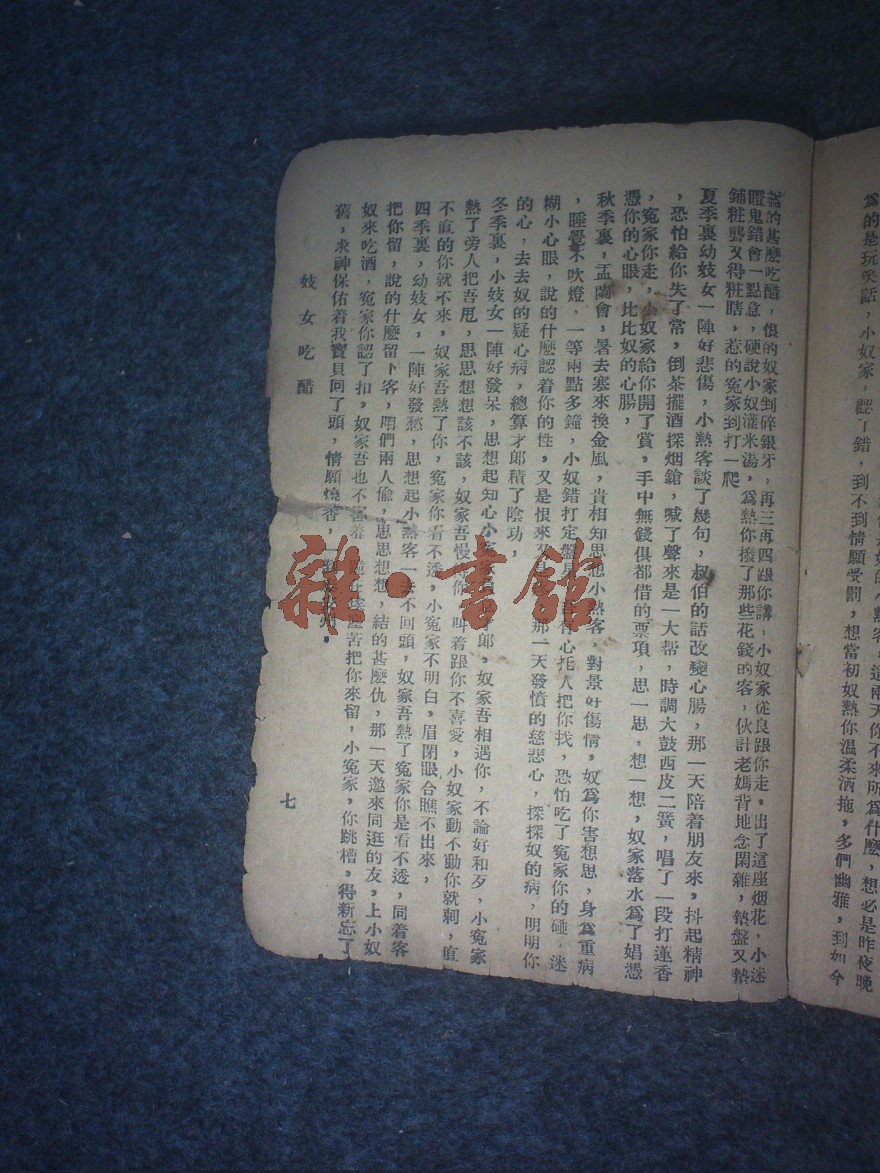 爲的是玩笑話,小奴家,認了錯,到不到情願受罰,想當初奴熱你溫柔洒拖,多們幽雅,到如今
的甚麽吃醋,恨的奴家到碎銀牙,再三再四跟你講,小奴家從良跟你走,出了這座烟花,小迷
瞪鬼錯會一點意,硬說小奴灌米湯,爲熱你撥了那些花錢的客,伙計老媽背地念閑雜,墊盤又墊
鋪粧聾又得粧瞎,惹的寃家到打一爬
夏季裏幼妓女一陣好悲傷,小熱客談了幾句,叔伯的話改變心腸,那一天陪着朋友來,抖起精神
,恐怕給你失了常,倒茶擺酒探烟鎗,喊了聲來是一大帮,時調大鼓西皮二簧,唱了一段打蓮香
,寃家你走,小奴家給你開了賞,手中無錢俱都借的票項,思一思,想一想,奴家落水爲了娼憑
憑你的心眼,比比奴的心腸,
秋季裏,盂蘭會,暑去寒來換金風,貴相知思想小熱客,對景好傷情,奴爲你害想思,身爲重病
,睡覺不吹燈,一等兩點多鐘,小奴錯打定盤星,心托人把你找,恐怕吃了寃家你的碰,迷
糊小心眼,說的什麽認着你的性,又是恨來又是,那一天發憤的慈悲心,探探奴的病,明明你
的心,去去奴的疑心病,總算才郎積了陰功,
冬季裏,小妓女一陣好發呆,思想起知心小郎,奴家吾相遇你,不論好和歹,小寃家
熱了旁人把吾甩,思思想想該不該,奴家吾慢待你,叫着跟你不喜愛,小奴家動不動你就刺,直
不直的你就不來,奴家吾熱了你,寃家你看不透,小寃家不明白,眉閉眼合瞧不出來,
四季裏,幼妓女,一陣好發愁,思想起小熱客一去不回頭,奴家吾熱了寃家你是看不透,同着客
把你留,說的什麽留下客,咱們兩人偷,思思想想,結的甚麽仇,那一天邀來同逛的友,上小奴
奴來吃酒,寃家你認了扣,奴家吾也不害羞,苦把你來留,小寃家,你跳槽,得新忘了
舊,求神保佑着我寶貝回了頭,情願燒香,
妓女吃醋
七
雜·書館